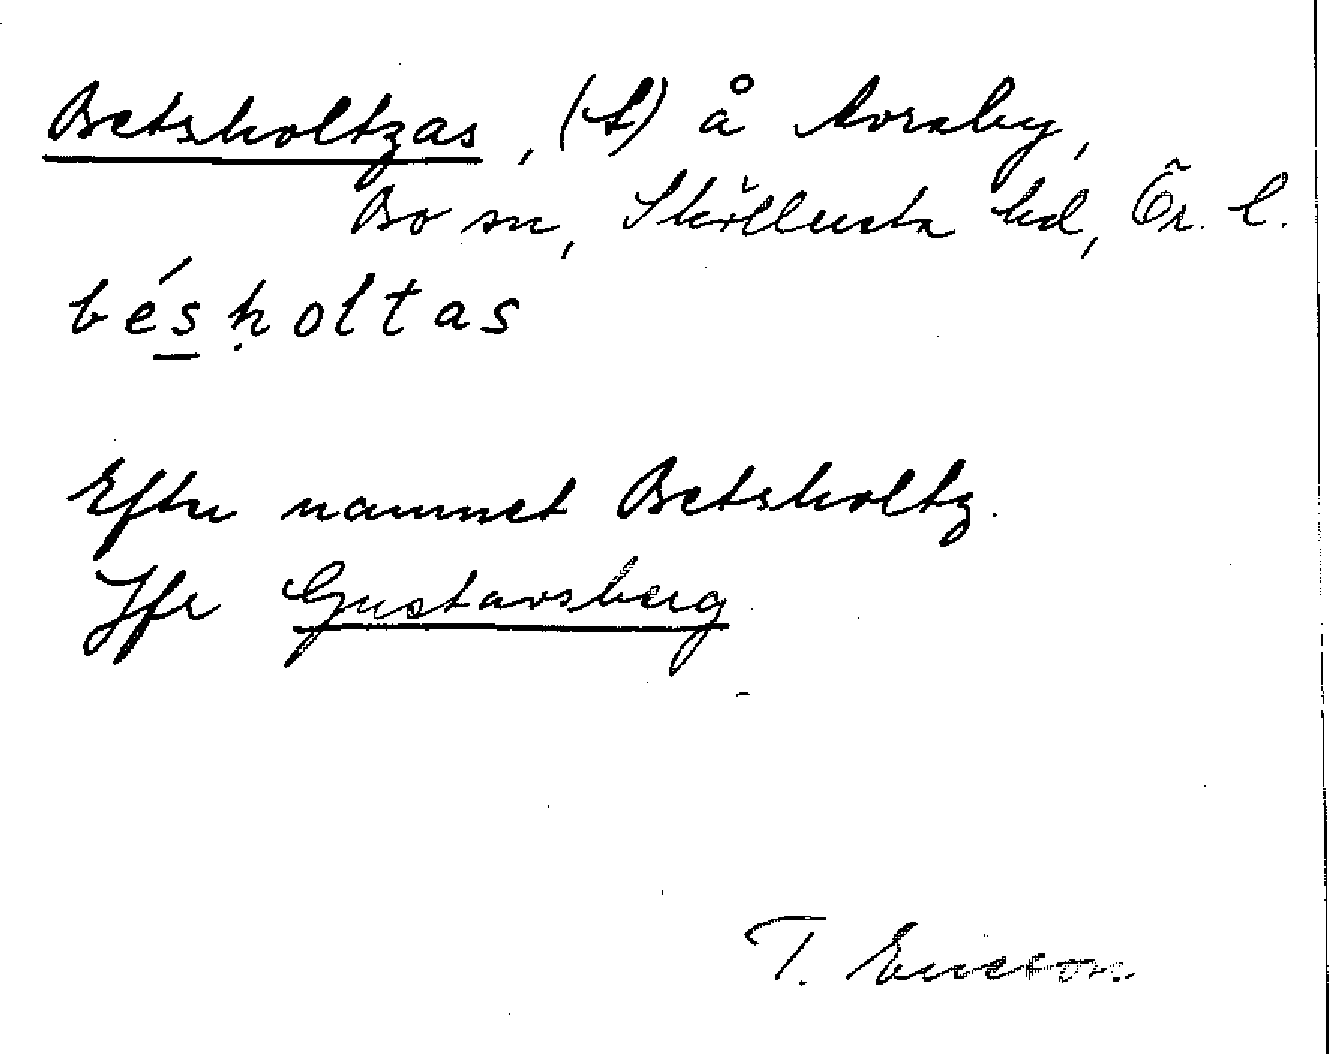 Betsholtzas, (t) å Avraby,
Bo sn, Sköllersta hd, Ör. l.
bésholtas
Efter namnet Betsholtz.
Jfr Gustavsberg
T. Ericson